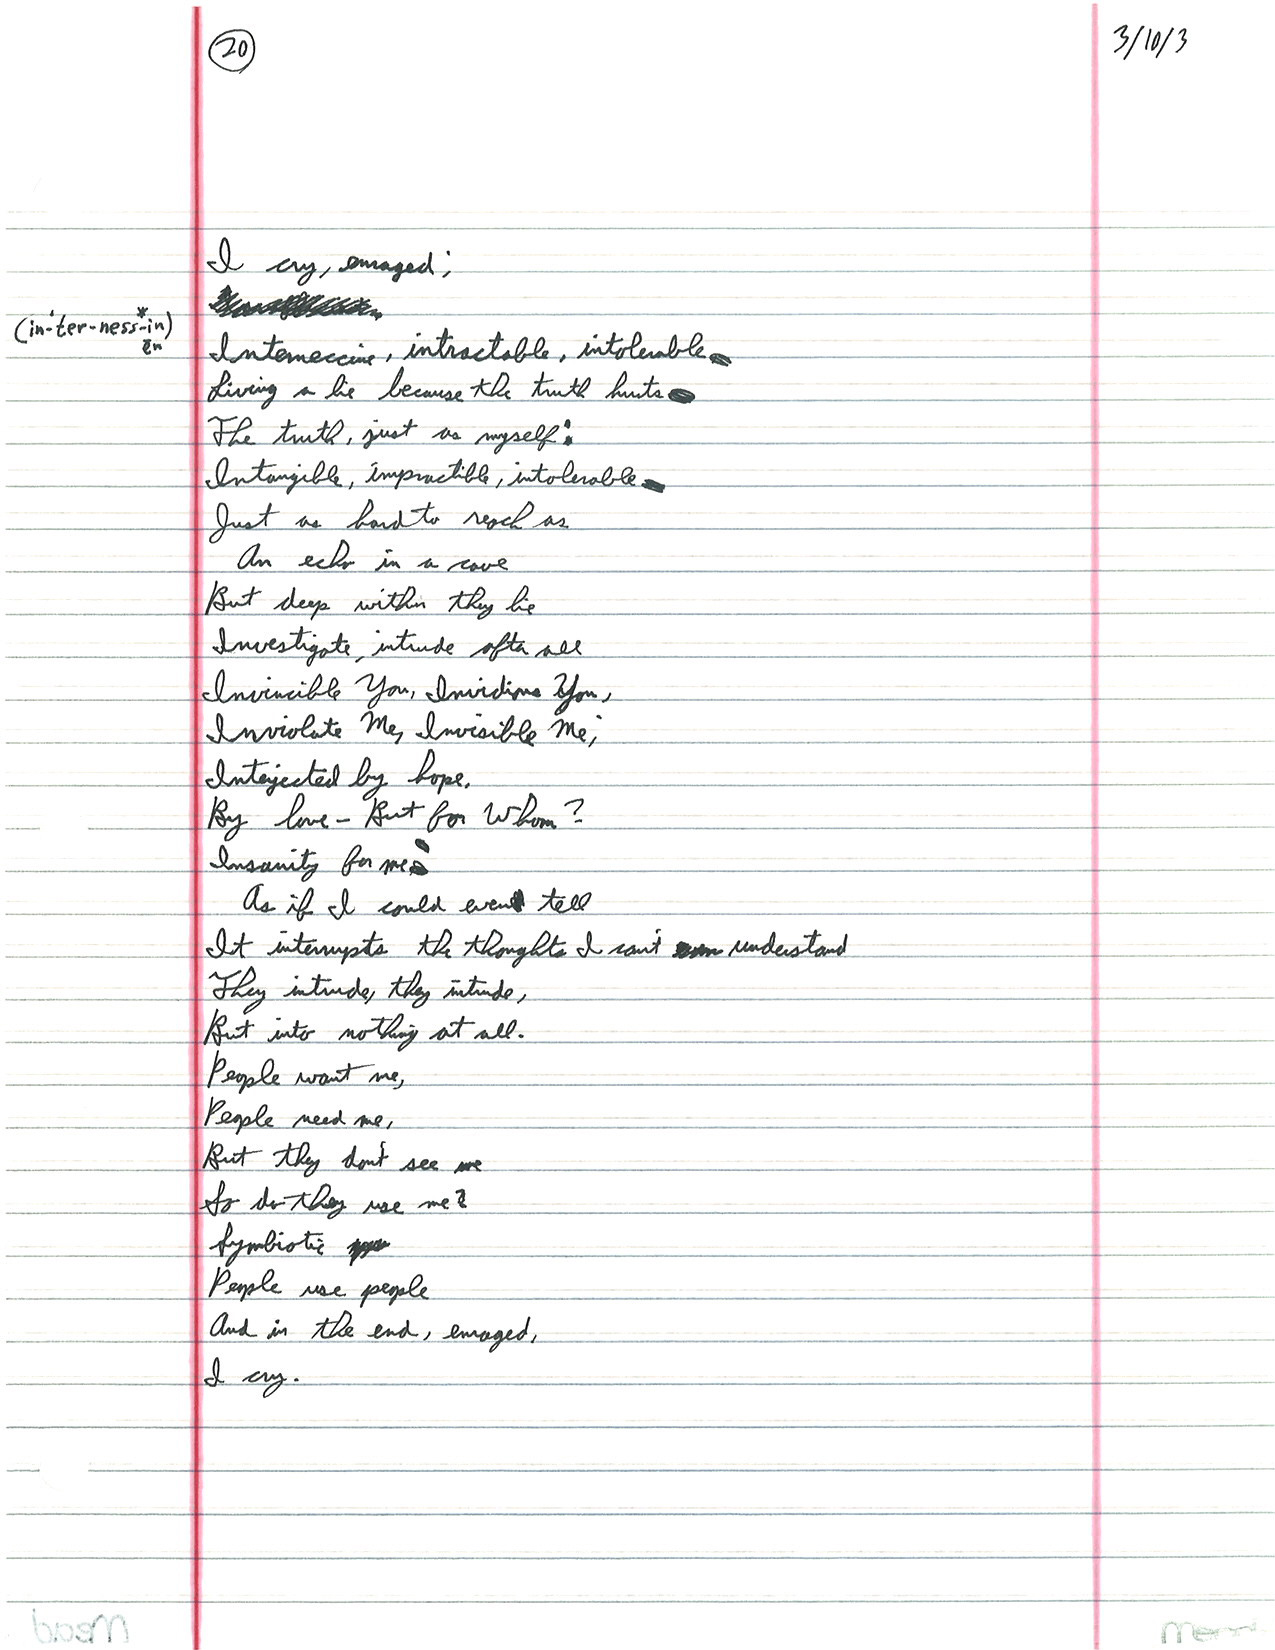 20
3/10/3
I cry, enraged;
(in-'ter-ness-in)
*
ĕn
Interneccine, intractable, intolerable
Living a lie because the truth hurts
The truth, just as myself:
Intangible, impractible, intolerable
Just as hard to reach as
An echo in a cave
But deep within they lie
Investigate, intrude after all
Invincible You, Invidious You,
Inviolate Me, Invisible Me;
Interjected by hope,
By love – But for Whom?
Insanity for me;
As if I could even tell
It interrupts the thoughts I can't understand
They intrude, they intrude,
But into nothing at all.
People want me,
People need me,
But they don't see me
So do they use me?
Symbiotic
People use people
And in the end, enraged,
I cry.
Mead